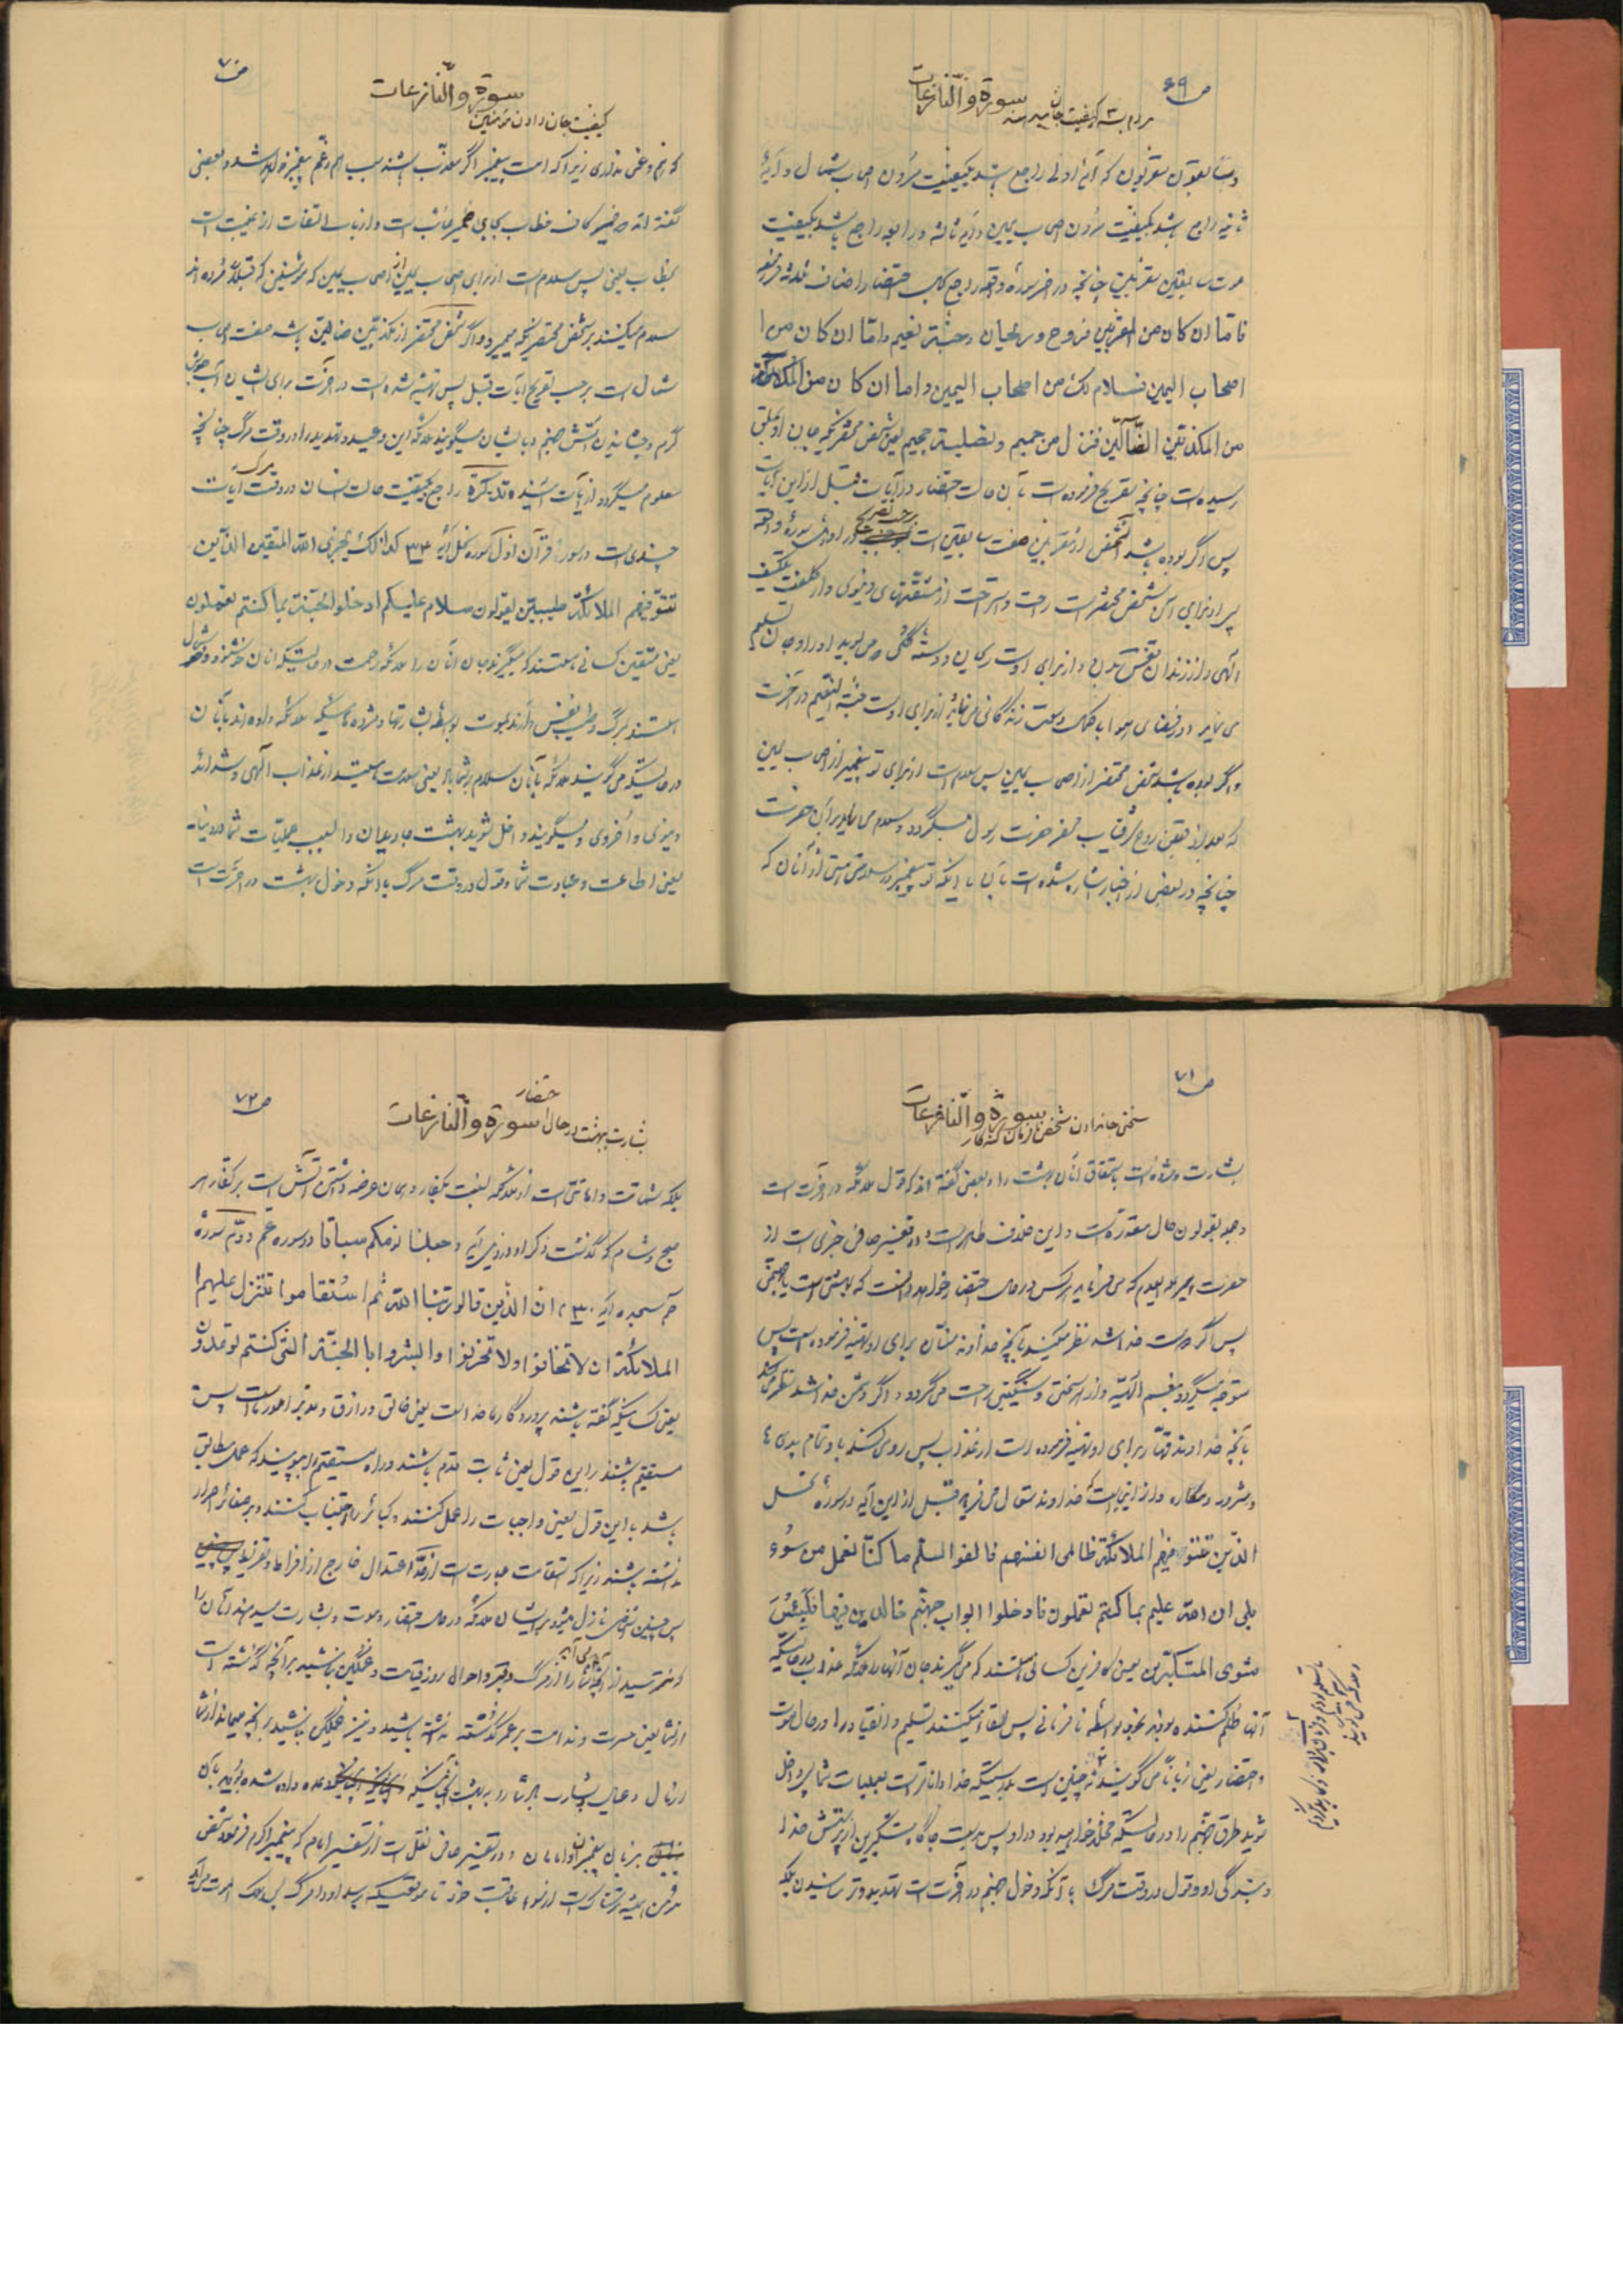 ص ۶۹
سورة والنازعات
مردم به ۳ کیفیت جان میدهند
و سابقون مقربون که آیهٔ اولی راجع باشد بکیفیت مردن اصحاب شمال و آیهٔ
ثانیه راجع باشد بکیفیت مردن اصحاب یمین و آیه ثالثه و رابعه راجع باشد بکیفیت
موت سابقین مقربین چنانچه در آخر سورهٔ واقعه راجع بحالت احتضار اصناف ثلاثه فرموده
فاما ان کان من المقربین فروح و ریحان و جنّة نعیم و امّا ان کان من
اصحاب الیمین فسلام لک من اصحاب الیمین و اما ان کان
من المکذبین الضّالّین فنزل من حمیم و تصلیة جحیم یعنی شخص محتضریکه جان او بحلق
رسیده است چنانچه تصریح فرموده است بآن حالت احتضار در آیات قبل از این آیات
پس اگر بوده باشد آنشخص از مقربین صفت سابقین است برحسب تصریح در اوائل سورهٔ واقعه
پس از برای آن شخص محتضر است راحت و استراحت از مشقتهای دنیوی و از کلفت تکلیف
الهی و از زندان نفس بدنی و از برای اوست ریحان و دستهٔ گلی که می بوید او را و جان تسلیم
می نماید و در فضای هوا با کمک وسعت زندگانی می نماید و از برای اوست جنّة النعیم در آخرت
و اگر بوده باشد شخص محتضر از اصحاب یمین پس سلام است از برای تو پیغمبر از اصحاب یمین
که بعد از قبض روح شرفیاب محضر حضرت رسول میگردد و سلام می نماید بر آن حضرت
چنانچه در بعضی از اخبار اشاره شده است بآن یا اینکه تو پیغمبر در سلامتی هستی از آنان که
ص ۷۰
سورة والنازعات
کیفیت جان دادن مؤمنین
که رنج و غمی نداری زیرا که امت پیغمبر اگر معذّب باشند سبب هم و غم پیغمبر خواهد شد و بعضی
گفته اند ضمیر کاف خطاب بجای ضمیر غائب است و از باب التفات از غیبت است
بخطاب یعنی پس سلام است از برای اصحاب یمین از اصحاب یمین که مؤمنین که قبلاً مُرده اند
سلام میکنند بر شخص محتضریکه میمیرد و اگر شخص محتضر از مکذبین ضالین باشد صفت اصحاب
شمال است برحسب تصریح آیات قبل پس تهیه شده است در آخرت برای ایشان آب جوش
گرم و چشانیدن آتش جهنم و بایشان میگویند ملائکه این وعید و تهدید را در وقت مرگ چنانچه
معلوم میگردد از آیات آینده تذکرة راجع بکیفیت حالت انسان در وقت مرگ آیات
چندی است در سوره قرآن اوّل سوره نحل آیهٔ ۳۳ کذالک یجزی الله المتقین الذین
تتوفیهم الملائکة طیبین یقولون سلام علیکم ادخلوا الجنّة بما کنتم تعملون
یعنی متقین کسانی هستند که میگیرند جان آنان را ملائکه رحمت در حالتیکه آنان خوشنود و خوشحال
هستند بمرگ و طیب نفس دارند بموت بواسطه بشارتها و مژده هائیکه ملائکه داده اند بآنان
در حالتیکه می گویند ملائکه بآنان سلام بر شما باد یعنی سلامت هستید از عذاب الهی و شدائد
دنیوی و اُخروی و میگویند داخل شوید بهشت جاویدان را بسبب عملیات شما در دنیا
یعنی اطاعت و عبادت شما و قول در وقت مرگ با آنکه دخول بهشت در آخرت است
ص ۷۱
سورة والنازعات
سختی جان دادن شخص نافرمان گنه کار
بشارت و مژده است باستحقاق آنان بهشت را و بعضی گفته اند که قول ملائکه در آخرت است
و جمله یقولون حال مقدره است و این خلاف ظاهر است و در تفسیر صافی خبری است از
حضرت امیر علیه السلام که می فرماید هر کس در حال احتضار خواهد دانست که بهشتی است یا جهنمی
پس اگر دوست خدا شد نظر میکند بآنچه خداوند منّان برای او تهیه فرموده است پس
متوجه میگردد بنعم الهیّه و از هر سختی و سنگینی راحت می گردد و اگر دشمن خدا شد نظر می کند
بآنچه خداوند قهّار برای او تهیه فرموده است از عذاب پس روی کند باو تمام بدی ها
و شرور و مکاره و از اینجاست که خداوند متعال می فرماید قبل از این آیه در سورهٔ نحل
الذین تتوفیهم الملائکة ظالمی انفسهم فالقوا السلم ما کنّا نعمل من سُوء
بلی ان الله علیم بما کنتم تعملون فادخلوا ابواب جهنّم خالدین فیها فلبئس
مثوی المتکبرین یعنی کافرین کسانی هستند که می گیرند جان آنها را ملائکه عذاب در حالتیکه
آنها ظلم کننده بودند بخود بواسطه نافرمانی پس القاء میکنند تسلیم و انقیاد را در حال موت
و احتضار یعنی زبانًا می گویند ۲ نه چنین است بدرستیکه خدا داناتر است بعملیات شما پس داخل
شوید طرق جهنّم را در حالتیکه مخلّد خواهید بود در او پس بد است جایگاه متکبرین از پرستش خدا
و بندگی او و قول در وقت مرگ با آنکه دخول جهنم در آخرت است تهدید و ترسانیدن بلکه
ص ۷۲
سورة والنازعات
بشارت بهشت در حال احتضار
بلکه شماتت و اهانتی است از ملائکه نسبت بکفار و همان عرضه داشتن آتش است بر کفّار هر
صبح و شام که گذشت ذکر او در ذیل آیه و جعلنا نومکم سباتا در سوره عمّ دوّم سورهٔ
حم سجده آیه ۳۰ ان الذین قالوا ربنا الله ثم استقاموا تتنزل علیهم
الملائکة ان لا تخافوا و لا تحزنوا و ابشروا بالجنّة التی کنتم توعدون
یعنی کسانیکه گفته باشند پرورد گار ما خداست یعنی خالق و رازق و مدبّر امور ماست پس
مستقیم باشند براین قول یعنی ثابت قدم باشند و راه مستقیم را بپویند که عمل مطابق
باشد با این قول یعنی واجبات را عمل کنند و کبائر را اجتناب کنند و بر صغائر اصرار
نداشته باشند زیرا که استقامت عبارت است از حدّ اعتدال خارج از افراط و تفریط
پس چنین اشخاص نازل میشود برایشان ملائکه در حال احتضار و موت و بشارت میدهند آنان را
که نترسید از آنچه می آید شما را از مرگ و قبر و احوال روز قیامت و غمگین نباشید برآنچه گذشته است
از شما یعنی حسرت و ندامت بر عمر گذشته نداشته باشید و نیز غمگین نباشید بر آنچه میماند از شما
از مال و عیال و بشارت باد شما را به بهشت آنچنانیکه وعده داده شده بودید بآن
بزبان پیغمبران و امامان و در تفسیر صافی نقل است از تفسیر امام که پیغمبر اکرم فرمود شخص
مؤمن همیشه ترسناک است از سوء عاقبت خود تا موقعیکه برسد او را مرگ پس ملک الموت می آید